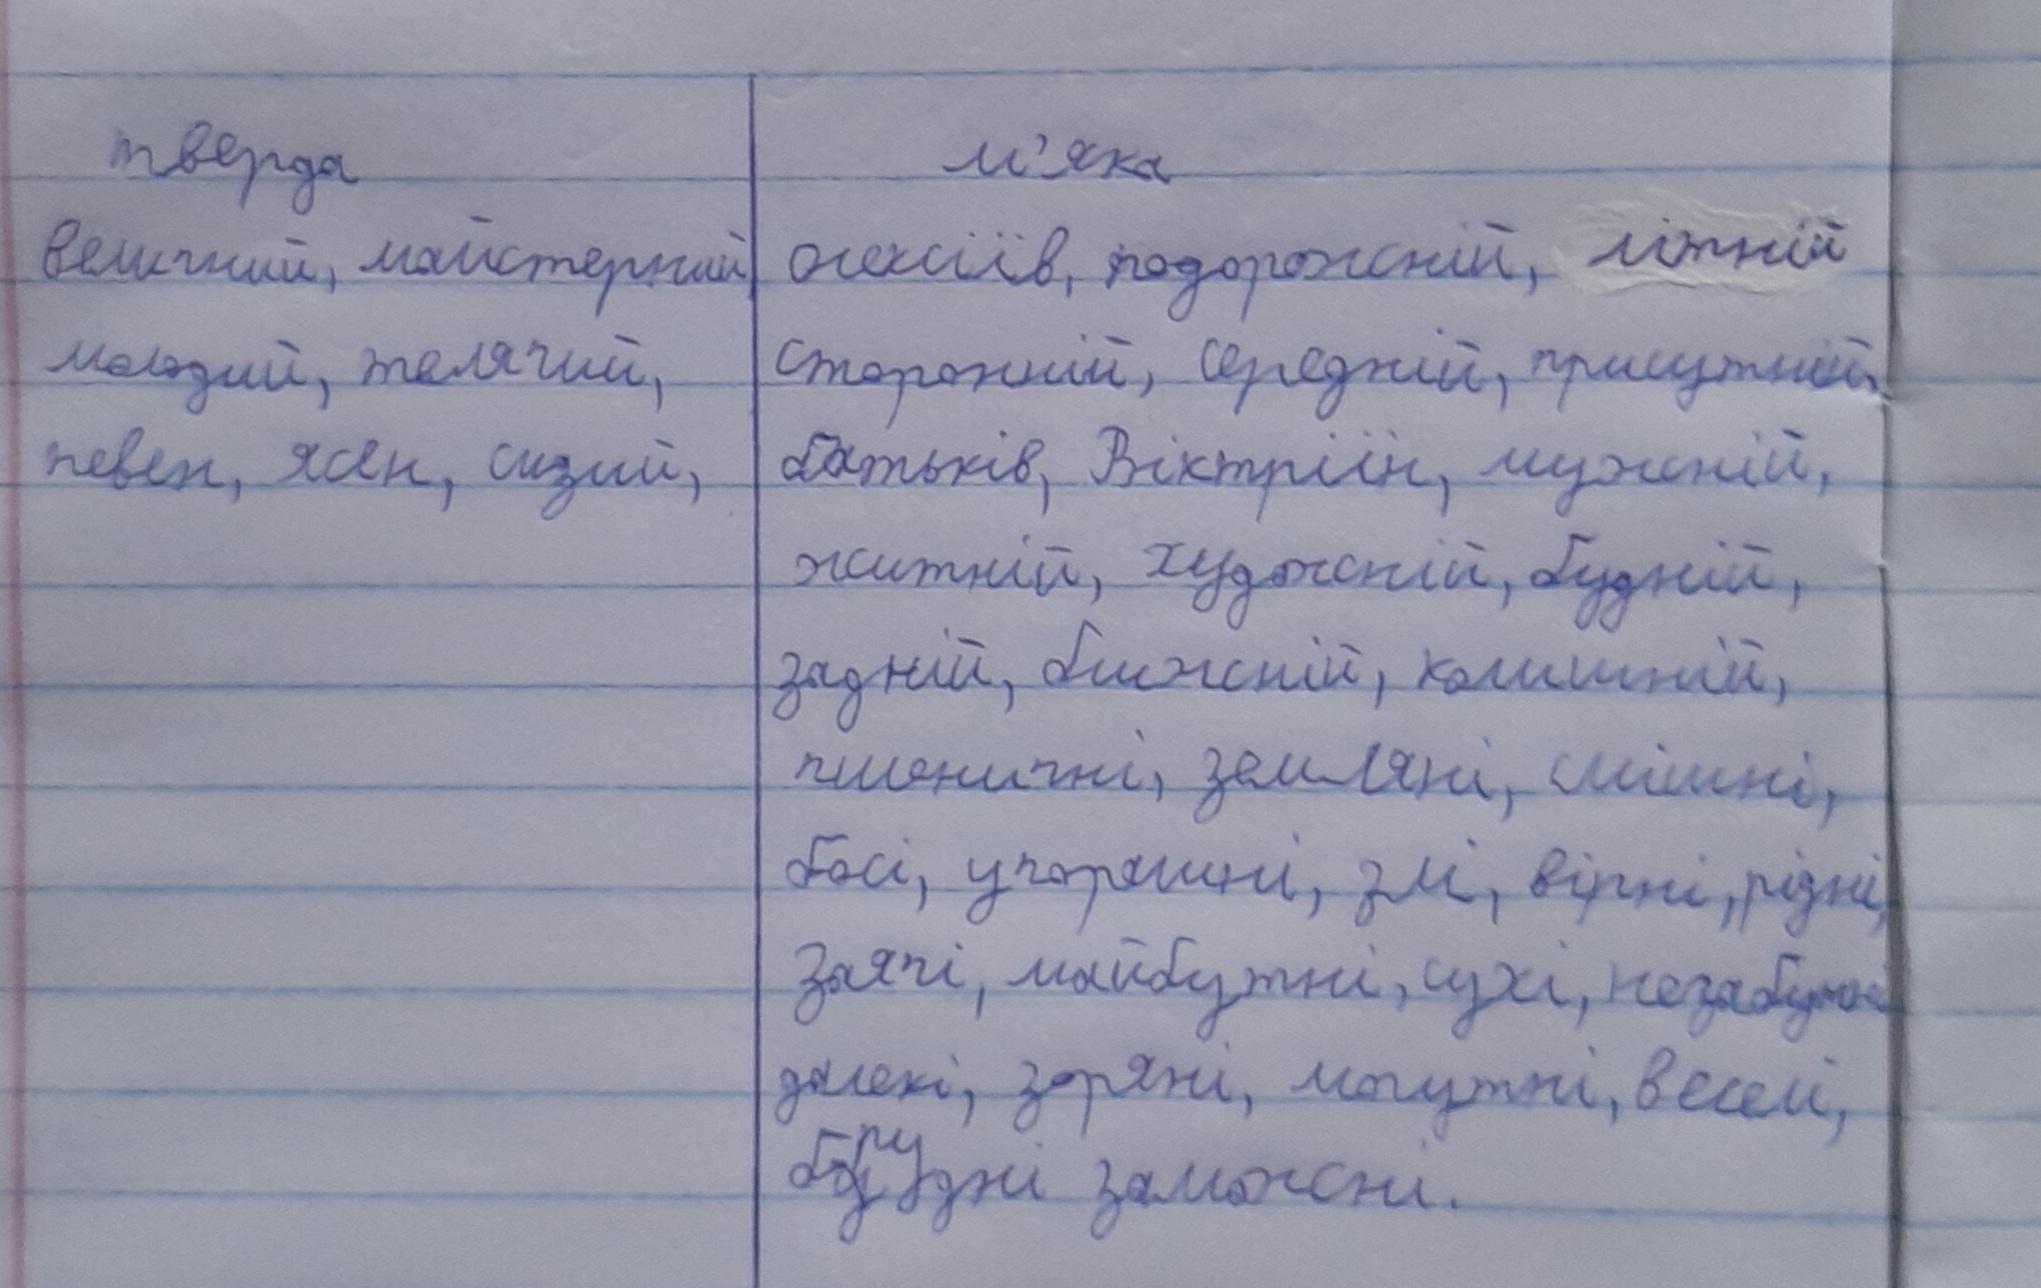 тверда
величний, майстерний
молодий, телячий,
певен, ясен, сизий,
м'яка
олексіїв, подорожній, літній
сторонній, середній, присутній,
батьків, Віктріїн, мужній,
житній, художній, будній,
задній, ближній, колишній,
пшеничні, земляні, смішні,
босі, учорашні, злі, вірні, рідні,
заячі, майбутні, сухі,
далекі, зоряні, могутні, веселі,
заможні.